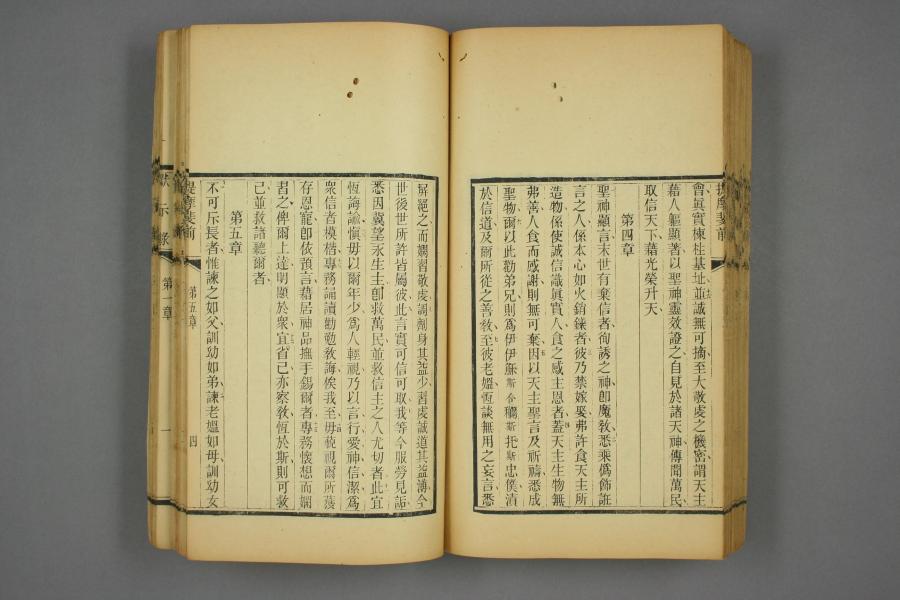 會眞實棟柱基址並誠無可摘至大敬虔之機密謂天主
藉人軀顯著以聖神靈效證之自見於諸天神傳聞萬民
取信天下藉光榮升天
第四章
聖神顯言末世有棄信者徇誘之神卽魔敎悉乘僞飾誑
言之人係本心如火銷鑠者彼乃禁嫁娶弗許食天主所
造物係使誠信識眞實人食之感主恩者蓋天主生物無
弗善人食而感謝則無可棄因以天主聖言及祈禱悉成
聖物爾以此勸弟兄則爲伊伊穌斯合穗斯托斯忠僕漬
於信道及爾所從之善敎至彼老媼恆談無用之妄言悉
屏絕之而嫺習敬虔調劑身其益少習虔誠道其益溥今
世後世所許皆屬彼此言實可信可取我等今服勞見詬
悉因冀望永生主卽救萬民並救信主之人尤切者此宜
恆誨諭愼毋以爾年少爲人輕視乃以言行愛神信潔爲
衆信者模楷專務誦讀勸勉敎誨俟我至毋藐視爾所蒙
存恩寵卽依預言藉居神品撫手錫爾者專務懷想而嫺
習之俾爾上達明顯於衆宜省己亦察敎恆於斯則可救
己並救諸聽爾者
第五章
不可斥長者惟諫之如父訓幼如弟諫老媼如母訓幼女
提摩斐前
第五章
四
默示錄
第一章
一